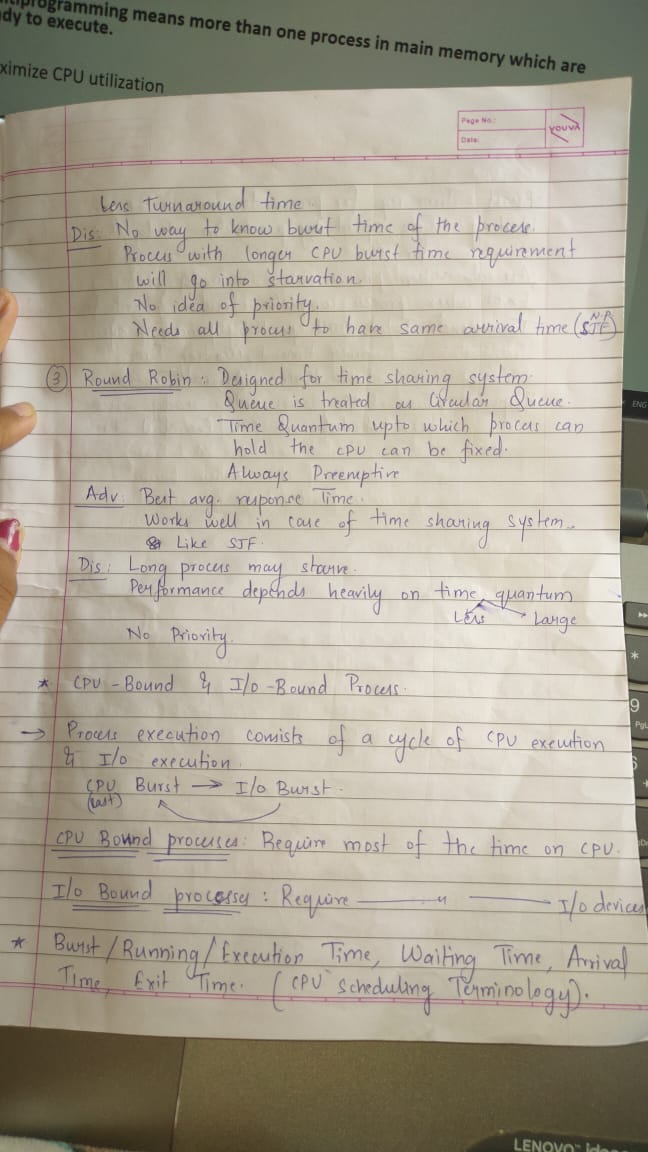 ltiprogramming means more than one process in main memory which are
dy to execute.
ximize CPU utilization
Page No.:
Date:
YOUVA
Less Turnaround time
Dis: No way to know burst time of the process.
Process with longer CPU burst time requirement
will go into starvation.
No idea of priority.
Needs all process to have same arrival time (SJF) NP
③ Round Robin: Designed for time sharing system.
Queue is treated as Circular Queue.
Time Quantum upto which process can
hold the CPU can be fixed.
Always Preemptive
Adv: Best avg. response Time.
Works well in case of time sharing system.
Like SJF.
Dis: Long process may starve.
Performance depends heavily on time quantum
Less Large
No Priority.
* CPU-Bound & I/o-Bound Process.
→ Process execution consists of a cycle of CPU execution
& I/o execution.
CPU Burst → I/o Burst.
(last)
CPU Bound processes: Require most of the time on CPU.
I/o Bound processes: Require —— " —— I/o devices
* Burst/Running/Execution Time, Waiting Time, Arrival
Time, Exit Time. (CPU Scheduling Terminology).
ENG
9
PgU
LENOVO